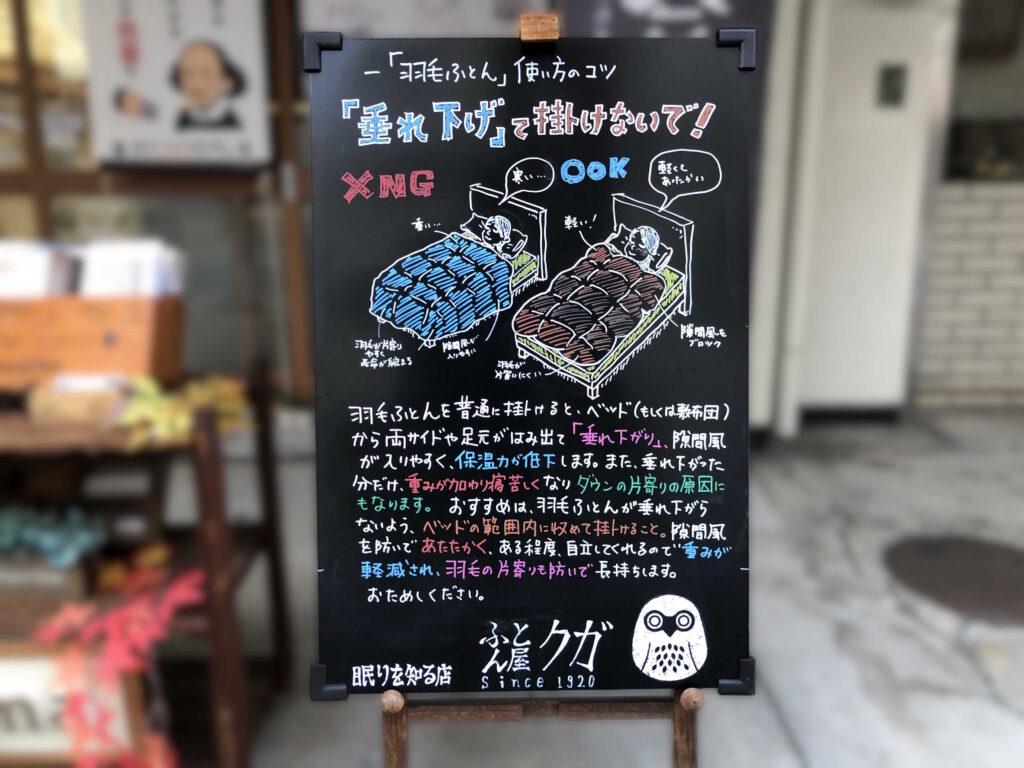 ー「羽毛ふとん」使い方のコツ
「垂れ下げ」て掛けないで!
×NG
寒い…
重い…
羽毛が片寄り
やすく
寿命が縮まる
隙間風が
入りやすい
○OK
軽くて
あたたかい
軽い!
羽毛が
片寄りにくい
隙間風を
ブロック
羽毛ふとんを普通に掛けると、ベッド(もしくは敷布団)
から両サイドや足元がはみ出て「垂れ下がり」、隙間風
が入りやすく、保温力が低下します。また、垂れ下がった
分だけ、重みが加わり寝苦しくなりダウンの片寄りの原因に
もなります。 おすすめは、羽毛ふとんが垂れ下がら
ないよう、ベッドの範囲内に収めて掛けること。隙間風
を防いであたたかく、ある程度、自立してくれるので重みが
軽減され、羽毛の片寄りも防いで長持ちします。
おためしください。
眠りを知る店
ふとん屋クガ
Since 1920